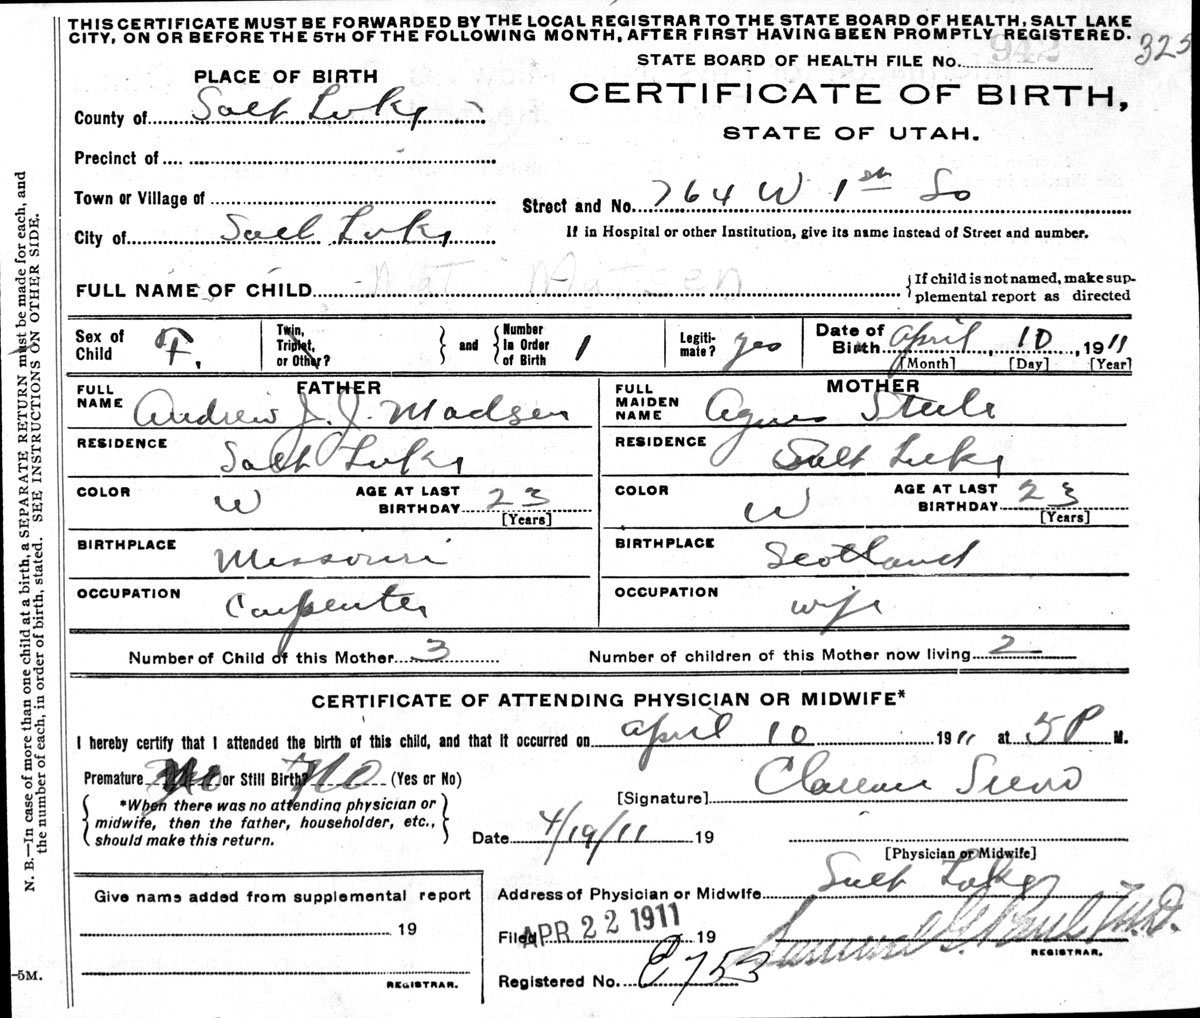 THIS CERTIFICATE MUST BE FORWARDED BY THE LOCAL REGISTRAR TO THE STATE BOARD OF HEALTH, SALT LAKE
CITY, ON OR BEFORE THE 5TH OF THE FOLLOWING MONTH, AFTER FIRST HAVING BEEN PROMPTLY REGISTERED.
325
STATE BOARD OF HEALTH FILE No. 942
PLACE OF BIRTH
CERTIFICATE OF BIRTH,
STATE OF UTAH.
County of Salt Lake
Precinct of
Town or Village of
Street and No. 764 W 1st So
City of Salt Lake
If in Hospital or other Institution, give its name instead of Street and number.
FULL NAME OF CHILD Mat Matsen
If child is not named, make sup-
plemental report as directed
Sex of Child F.
Twin, Triplet, or Other?
and
Number In Order of Birth 1
Legiti-mate? yes
Date of Birth April 10, 1911
[Month] [Day] [Year]
FATHER
FULL NAME Andrew J. J. Madsen
RESIDENCE Salt Lake
COLOR W
AGE AT LAST BIRTHDAY 23
[Years]
BIRTHPLACE Missouri
OCCUPATION Carpenter
MOTHER
FULL MAIDEN NAME Agnes Steele
RESIDENCE Salt Lake
COLOR W
AGE AT LAST BIRTHDAY 23
[Years]
BIRTHPLACE Scotland
OCCUPATION wife
Number of Child of this Mother 3
Number of children of this Mother now living 2
CERTIFICATE OF ATTENDING PHYSICIAN OR MIDWIFE*
I hereby certify that I attended the birth of this child, and that it occurred on April 10 1911 at 5 P M.
Premature No or Still Birth? No (Yes or No)
*When there was no attending physician or
midwife, then the father, householder, etc.,
should make this return.
[Signature] Clarence
Date 4/19/11 19
[Physician or Midwife]
Give name added from supplemental report
19
REGISTRAR.
Address of Physician or Midwife Salt Lake
Filed APR 22 1911 19
Samuel G. Paul M.D.
REGISTRAR.
Registered No. C753
N. B.—In case of more than one child at a birth, a SEPARATE RETURN must be made for each, and
the number of each, in order of birth, stated. SEE INSTRUCTIONS ON OTHER SIDE.
-5M.